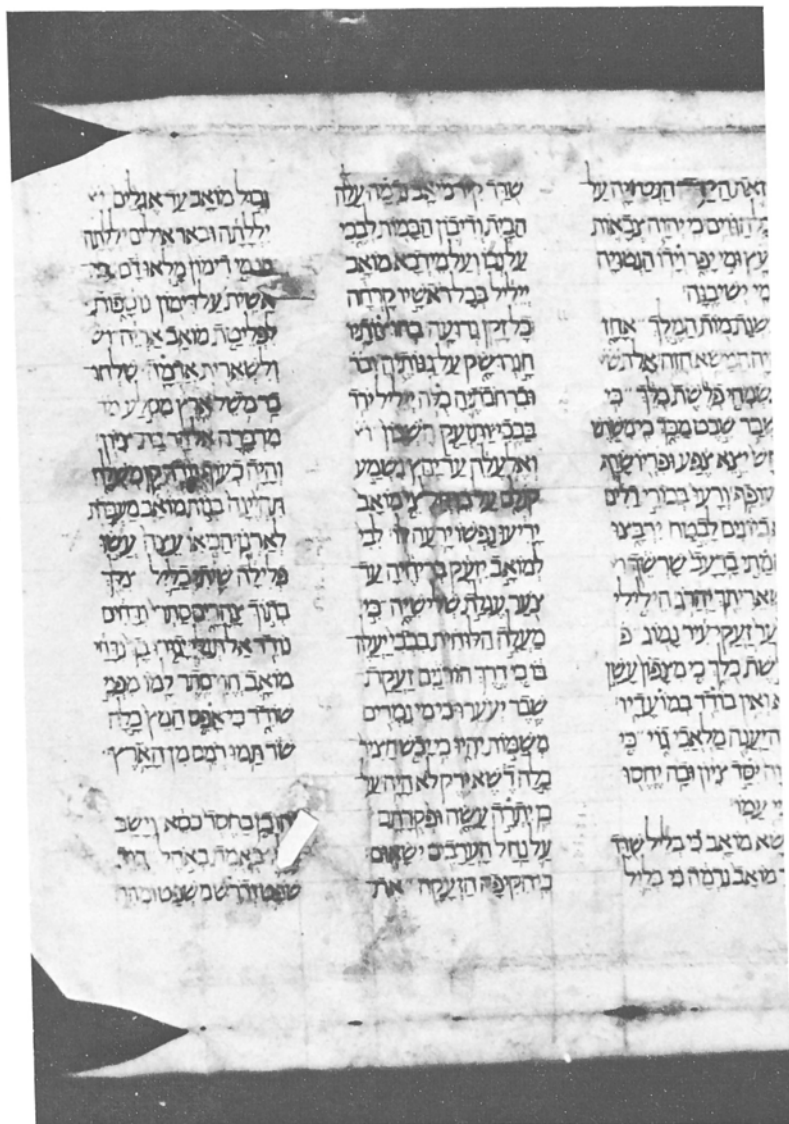 זאת היד הנטויה על
כל הגוים כי יהוה צבאות
יעץ ומי יפר וידו הנטויה
מי ישיבנה
שנת מות המלך אחז
יה המשא הזה אל תש
שמחי פלשת כלך כי
שבר שבט מכך כי משרש
חש יצא צפע ופריו שרף
עופף ורעו בכורי דלים
אביונים לבטח ירבצו
המתי ברעב שרשך ו
שאריתך יהרג הילילי
שער זעקי עיר נמוג פ
שת כלך כי מצפון עשן
א ואין בודד במועדיו
ה יענה מלאכי גוי כי
וה יסד ציון ובה יחסו
יי עמו
שא מואב כי בליל שדד
ר מואב נדמה כי בליל
שדד קיר מואב נדמה עלה
הבית ודיבון הבמות לבכי
על נבו ועל מידבא מואב
ייליל בכל ראשיו קרחה
כל זקן גדועה בחוצותיו
חגרו שק על גגותיה וב
וברחבתיה כלה ייליל ירד
בבכי ותזעק חשבון ו
ואלעלה עד יהץ נשמע
קולם על כן חלצי מואב
יריעו נפשו ירעה לו לבי
למואב יזעק בריחיה עד
צער עגלת שלישיה כי
מעלה הלוחית בבכי יעלה
בו כי דרך חורנים זעקת
שבר יעערו כי מי נמרים
משמות יהיו כי יבש חציר
כלה דשא ירק לא היה על
כן יתרה עשה ופקדתם
על נחל הערבים ישאום
כי הקיפה הזעקה את
גבול מואב עד אגלים
יללתה ובאר אילים יללתה
כי מי דימון מלאו דם כי
אשית על דימון נוספות
לפליטת מואב אריה ו
ולשארית אדמה שלחו
כר משל ארץ מסלע מד
מדברה אל הר בת ציון
והיה כעוף נודד קן משלח
תהיינה בנות מואב מעברת
לארנון הביאו עצה עשו
פלילה שיתי כליל צלך
בתוך צהרים סתרי נדחים
נודד אל תגלי יגורו בך נדחי
מואב הוי סתר למו מפני
שודד כי אפס המץ כלה
שד תמו רמס מן הארץ
והוכן בחסד כסא וישב
עליו באמת באהל דוד
שופט ודרש משפט ומהר